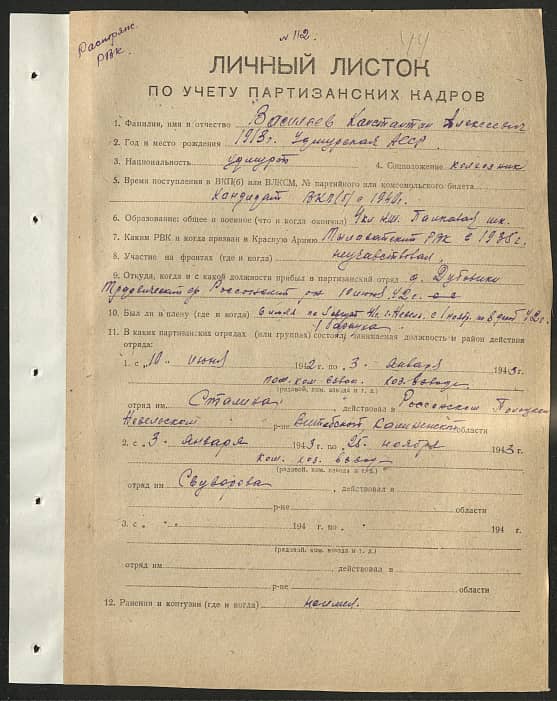 Распоряж.
РВК.
№ 112.
44
ЛИЧНЫЙ ЛИСТОК
ПО УЧЕТУ ПАРТИЗАНСКИХ КАДРОВ
1. Фамилия, имя и отчество Васильев Константин Алексеевич
2. Год и место рождения 1918г. Удмурская АССР
3. Национальность удмурт 4. Соцположение колхозник
5. Время поступления в ВКП(б) или ВЛКСМ, № партийного или комсомольского билета
Кандидат ВКП(б) с 1942г.
6. Образование: общее и военное (что и когда окончил) 4кл нш. Полковая шк.
7. Каким РВК и когда призван в Красную Армию РВК с 1938г.
8. Участие на фронтах (где и когда) неучавствовал.
9. Откуда, когда и с какой должности прибыл в партизанский отряд д. Дубовики
10 июня 42г.
10. Был ли в плену (где и когда)
11. В каких партизанских отрядах (или группах) состоял, занимаемая должность и район действия
отряда:
1. с „10„ июня 1942г по „3„ января 1943г.
пом. ком. взвод. хоз. взвода
(рядовой, ком. взвода и т. д.)
отряд им. Сталина действовал в Россонском
Невельском р-не Витебской, Калининской области
2. с „3„ января 1943 г. по „25„ ноября 1943г.
ком. хоз. взвод
(рядовой, ком. взвода и т.д.)
отряд им Суворова, действовал в
р-не области
3. с „ „ 194 г. по „ „ 194 г.
(рядовой, ком. взвода и т. д.)
отряд им. действовал в
р-не области
12. Ранения и контузии (где и когда) неимел.